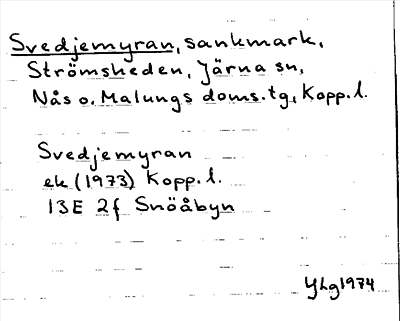 Svedjemyran, sankmark,
Strömsheden, Järna sn,
Nås o. Malungs doms.tg, Kopp.l.
Svedjemyran
ek (1973) Kopp.l.
13E 2f Snöåbyn
YLg1974